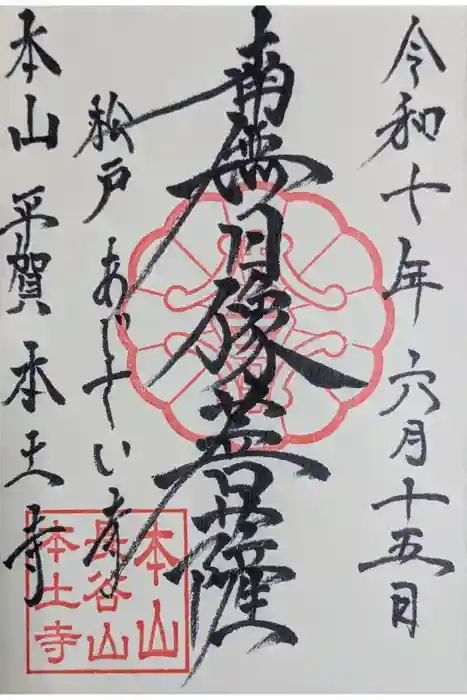 令和十年 六月十五日
南無日像菩薩
松戸 あじさい寺
本山 平賀 本土寺
本山
長谷山
本土寺